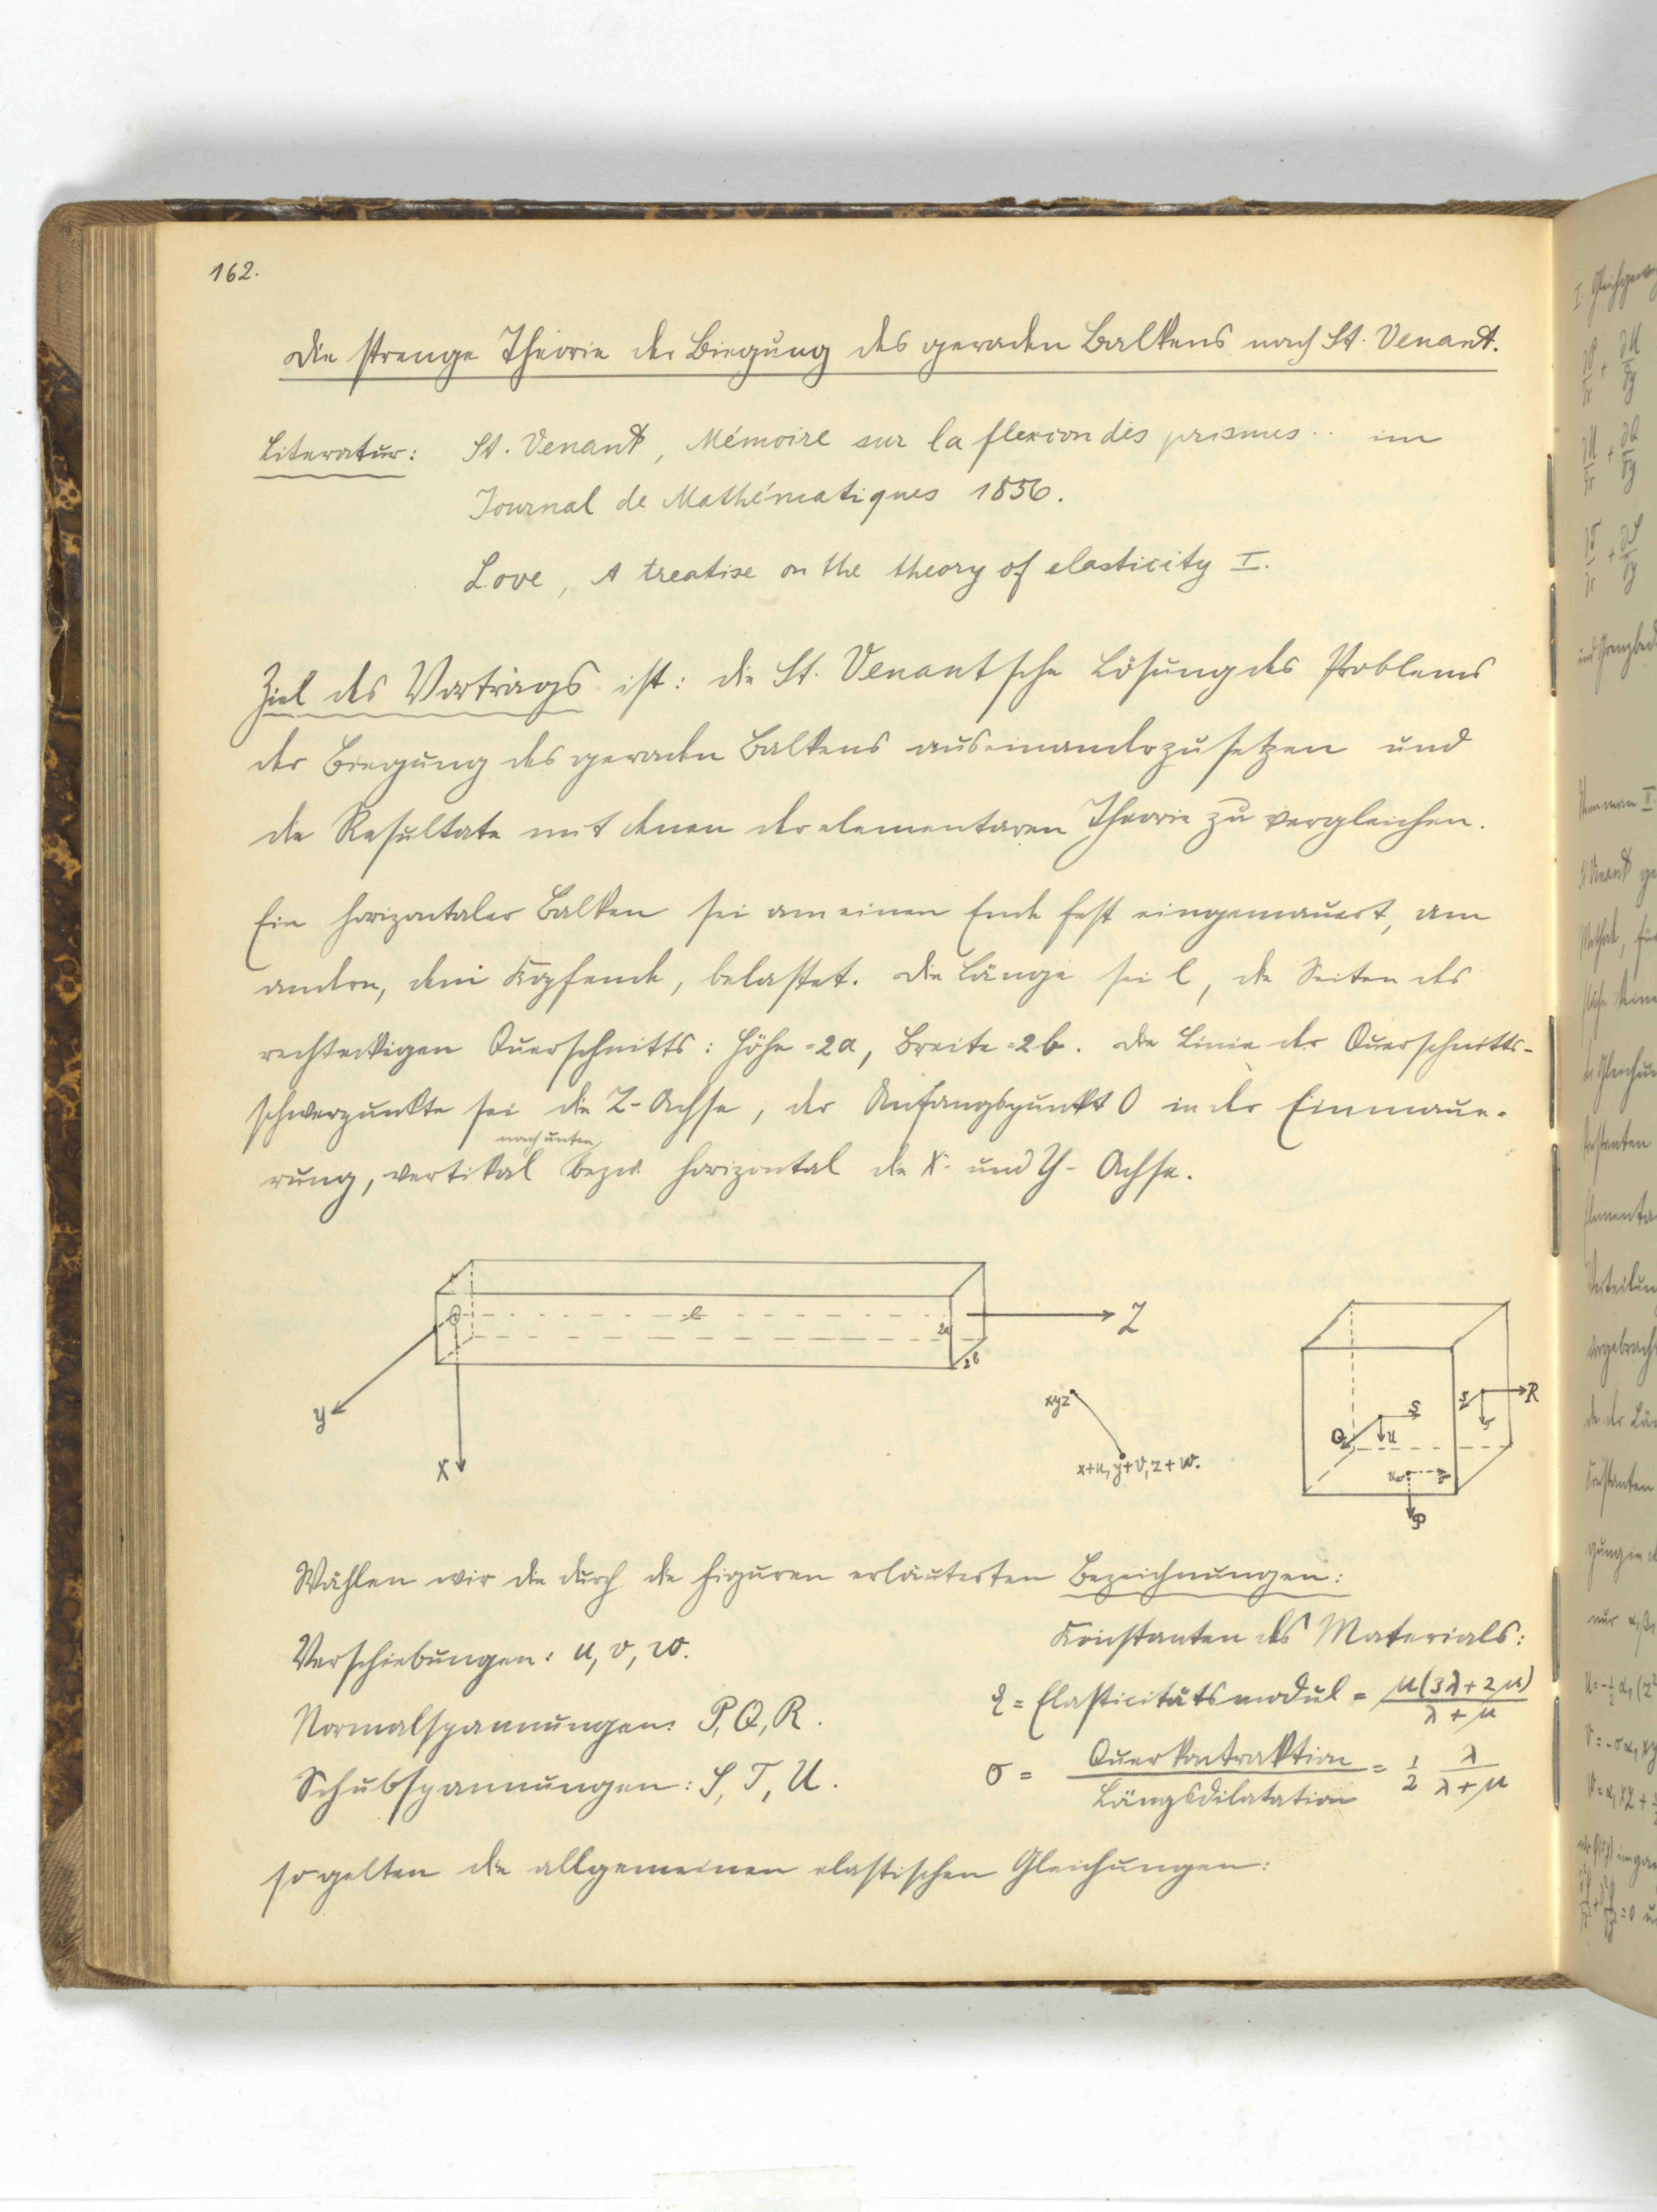 162.
Die strenge Theorie der Biegung des geraden Balkens nach St. Venant.
Literatur: St. Venant, Mémoire sur la flexion des prismes .. im
Journal de Mathématiques 1856.
Love, A treatise on the theory of elasticity I.
Ziel des Vortrags ist: die St. Venantsche Lösung des Problems
der Biegung des geraden Balkens auseinanderzusetzen und
die Resultate mit denen der elementaren Theorie zu vergleichen.
Ein horizontaler Balken sei am einen Ende fest eingemauert, am
andern, dem Kopfende, belastet. Die Länge sei l, die Seiten des
rechteckigen Querschnitts: Höhe = 2a, Breite = 2b. Die Linie der Querschnitts-
schwerpunkte sei die Z-Achse, der Anfangspunkt O in der Einmaue-
nach unten
rung, vertikal bezw. horizontal die X- und Y-Achse.
O l 2a 2b Z
y
X
xyz
x+u, y+v, z+w.
S R
Q S U T
U T
P
Wählen wir die durch die Figuren erläuterten Bezeichnungen:
Konstanten des Materials:
Verschiebungen: u, v, w.
= Elasticitätsmodul = μ(3λ+2μ) / λ+μ
Normalspannungen: P, Q, R.
σ = Querkontraktion / Längsdilatation = 1/2 λ / λ+μ
Schubspannungen: S, T, U.
so gelten die allgemeinen elastischen Gleichungen: